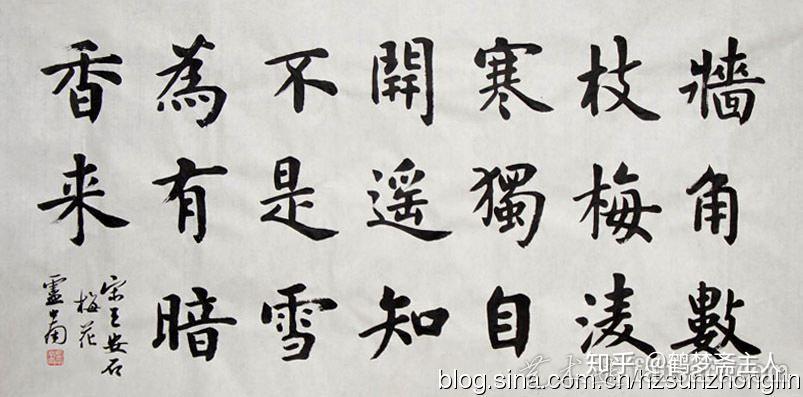 牆角數
枝梅凌
寒獨自
開遥知
不是雪
為有暗
香来
宋王安石
梅花
知乎 @鹤梦斋主人
blog.sina.com.cn/hzsunzhonglin